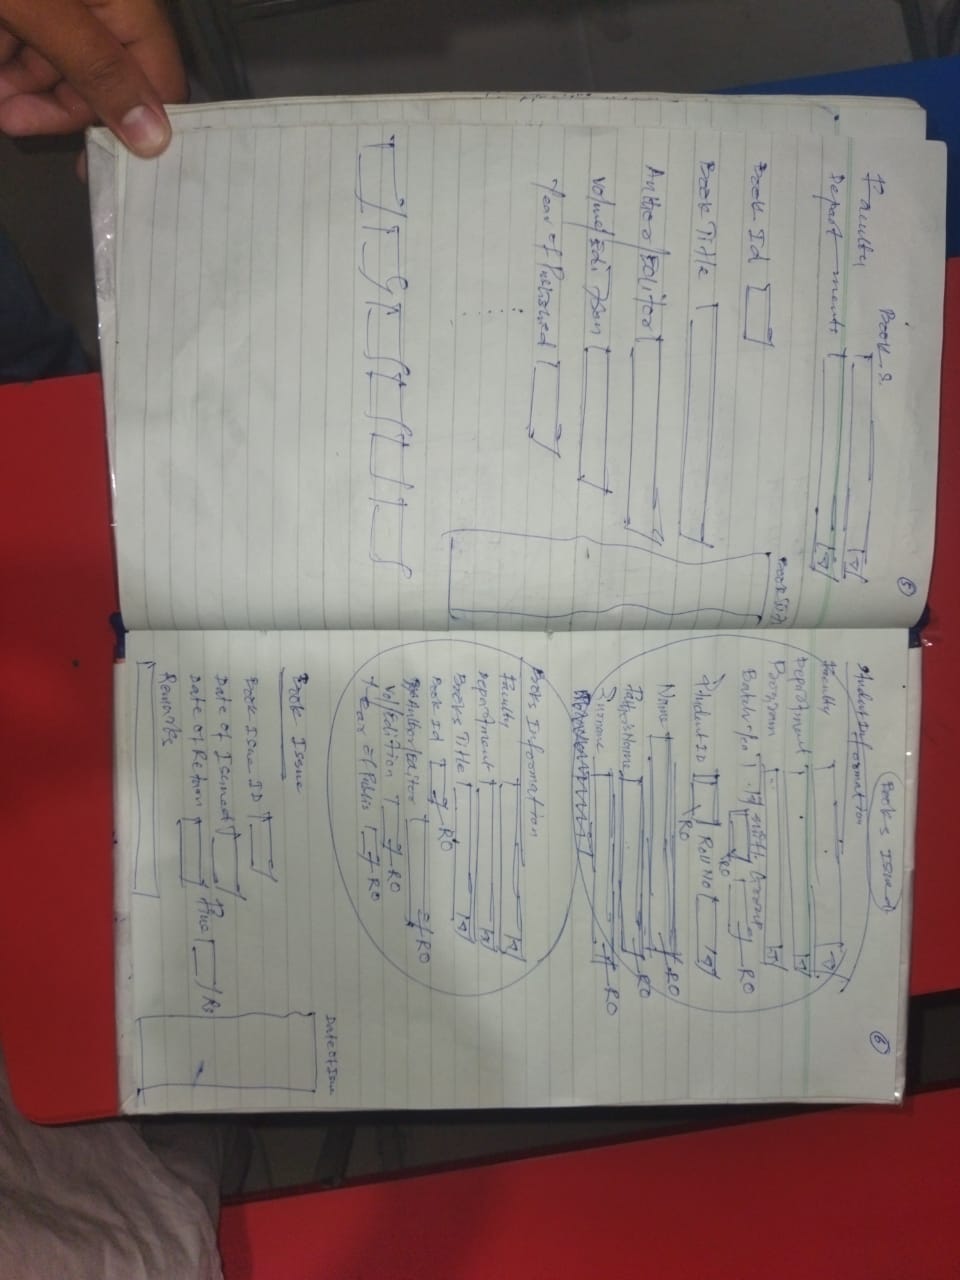 Books
5
Faculty
Departments
Book Id
Book Title
Author/Editor
Volume/Edition
Year of Published
Book IDs
Books Issued
6
Student Information
Faculty
Department
Program
Batch
Shift
Group
RO
RO
Student ID
RO
Roll No
Name
RO
Father's Name
RO
Surname
RO
Books Information
Faculty
Department
Books Title
Book Id
RO
Author/Editor
RO
Vol/Edition
RO
Year of Publis
RO
Book Issue
Date of Issue
Book Issue ID
Date of Issued
Date of Return
Fine
Rs
Remarks